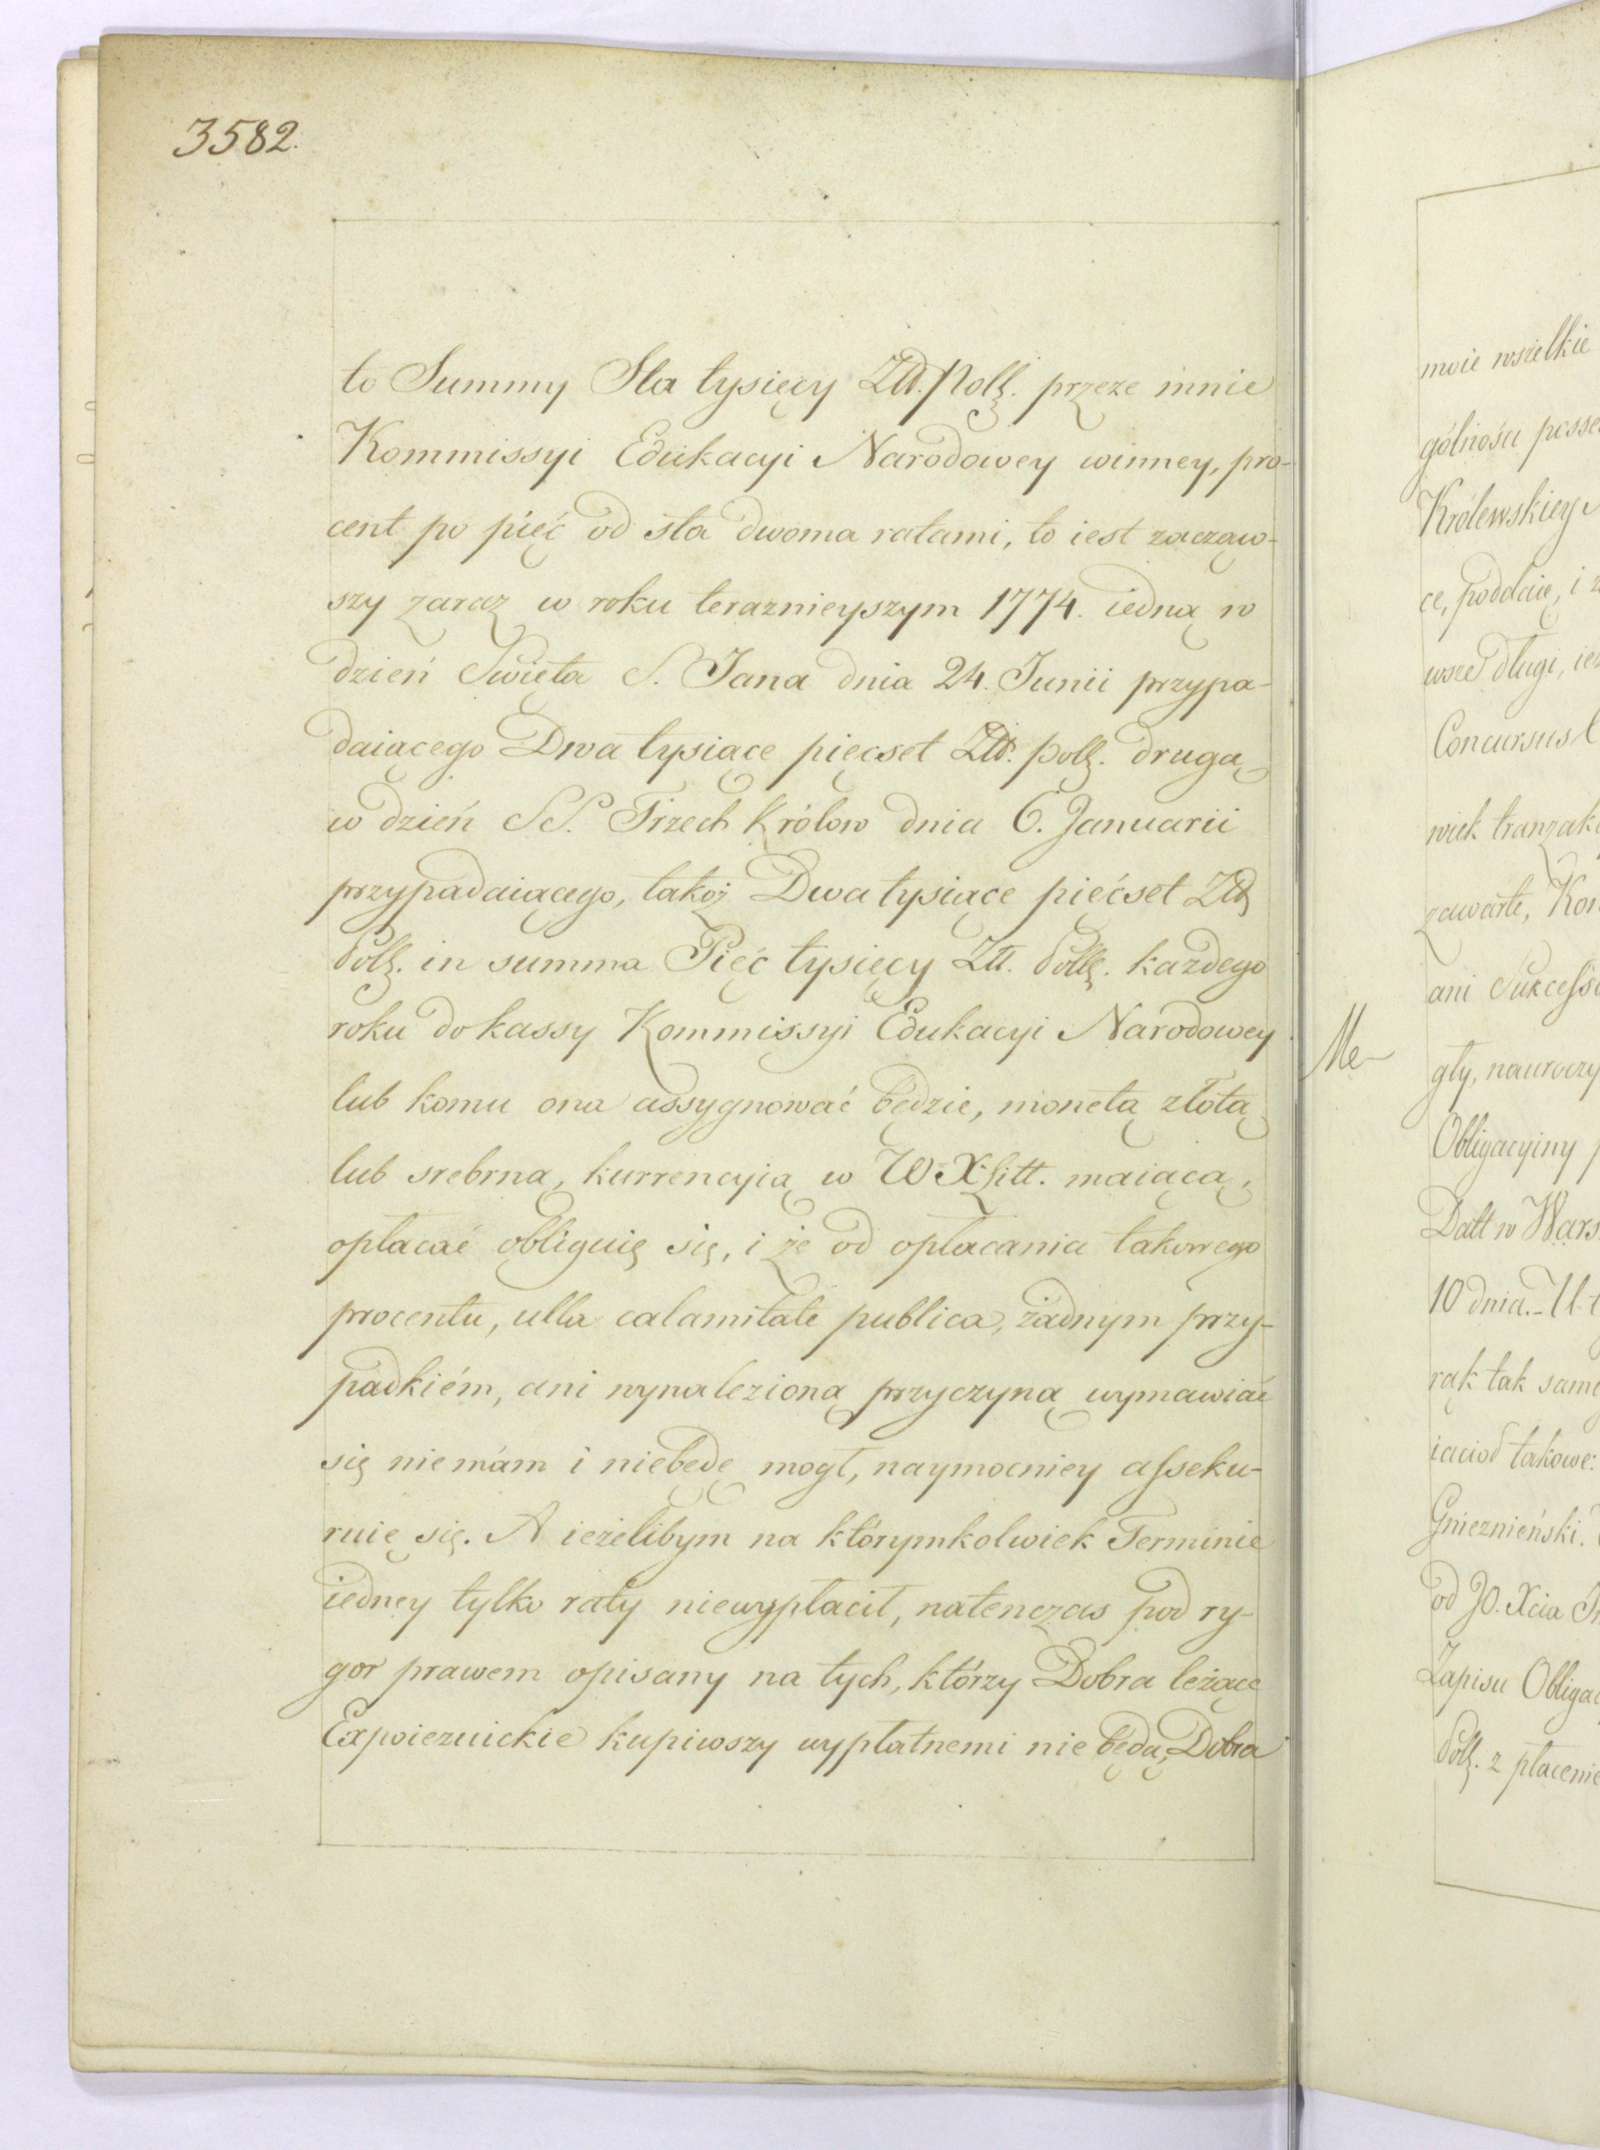 3582.
to Summy Sta tysięcy Złł. Polſ. przeze mnie
Kommissyi Edukacyi Narodowey winney, pro-
cent po pięć od sta dwoma ratami, to iest zacząw-
szy zaraz w roku teraznieyszym 1774. iedną w
dzień Swięta S. Jana dnia 24. Junii przypa-
daiącego Dwa tysiące pięcset Złł. polſ. drugą
w dzień SS. Trzech Królow dnia 6. Januarii
przypadaiącego, takoż Dwa tysiące pięćset Złł
Polſ. in summa Pięć tysięcy Złł. Polſ. każdego
roku do kassy Kommissyi Edukacyi Narodowey
lub komu ona assygnować będzie, monetą złotą
lub srebrną, kurrencyią w W. X. Litt. maiącą,
opłacać obliguię się, i że od opłacania takowego
procentu, ulla calamitate publica, żadnym przy-
padkiém, ani wynalezioną przyczyną wymawiać
się niemám i niebędę mogł, naymocniey aſseku-
ruię się. A ieżelibym na którymkolwiek Terminie
iedney tylko raty niewypłacił, natenczas pod ry-
gor prawem opisany na tych, którzy Dobra leżące
Expoiezuickie kupiwszy wypłatnemi nie będą, Dobra
moie wszelkie
gólności
Królewskiey
ce, poddaię, i
wsze długi,
Concursus
wiek
zawarte,
ani
gły,
Obligacyiny
Datt w
10 dnia.
rąk tak
takowe:
Gnieznieński.
od JO. Xcia
Zapisu
Polſ. z